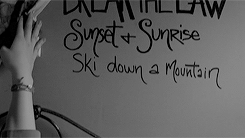 BREAK THE LAW
Sunset & Sunrise
Ski down a Mountain